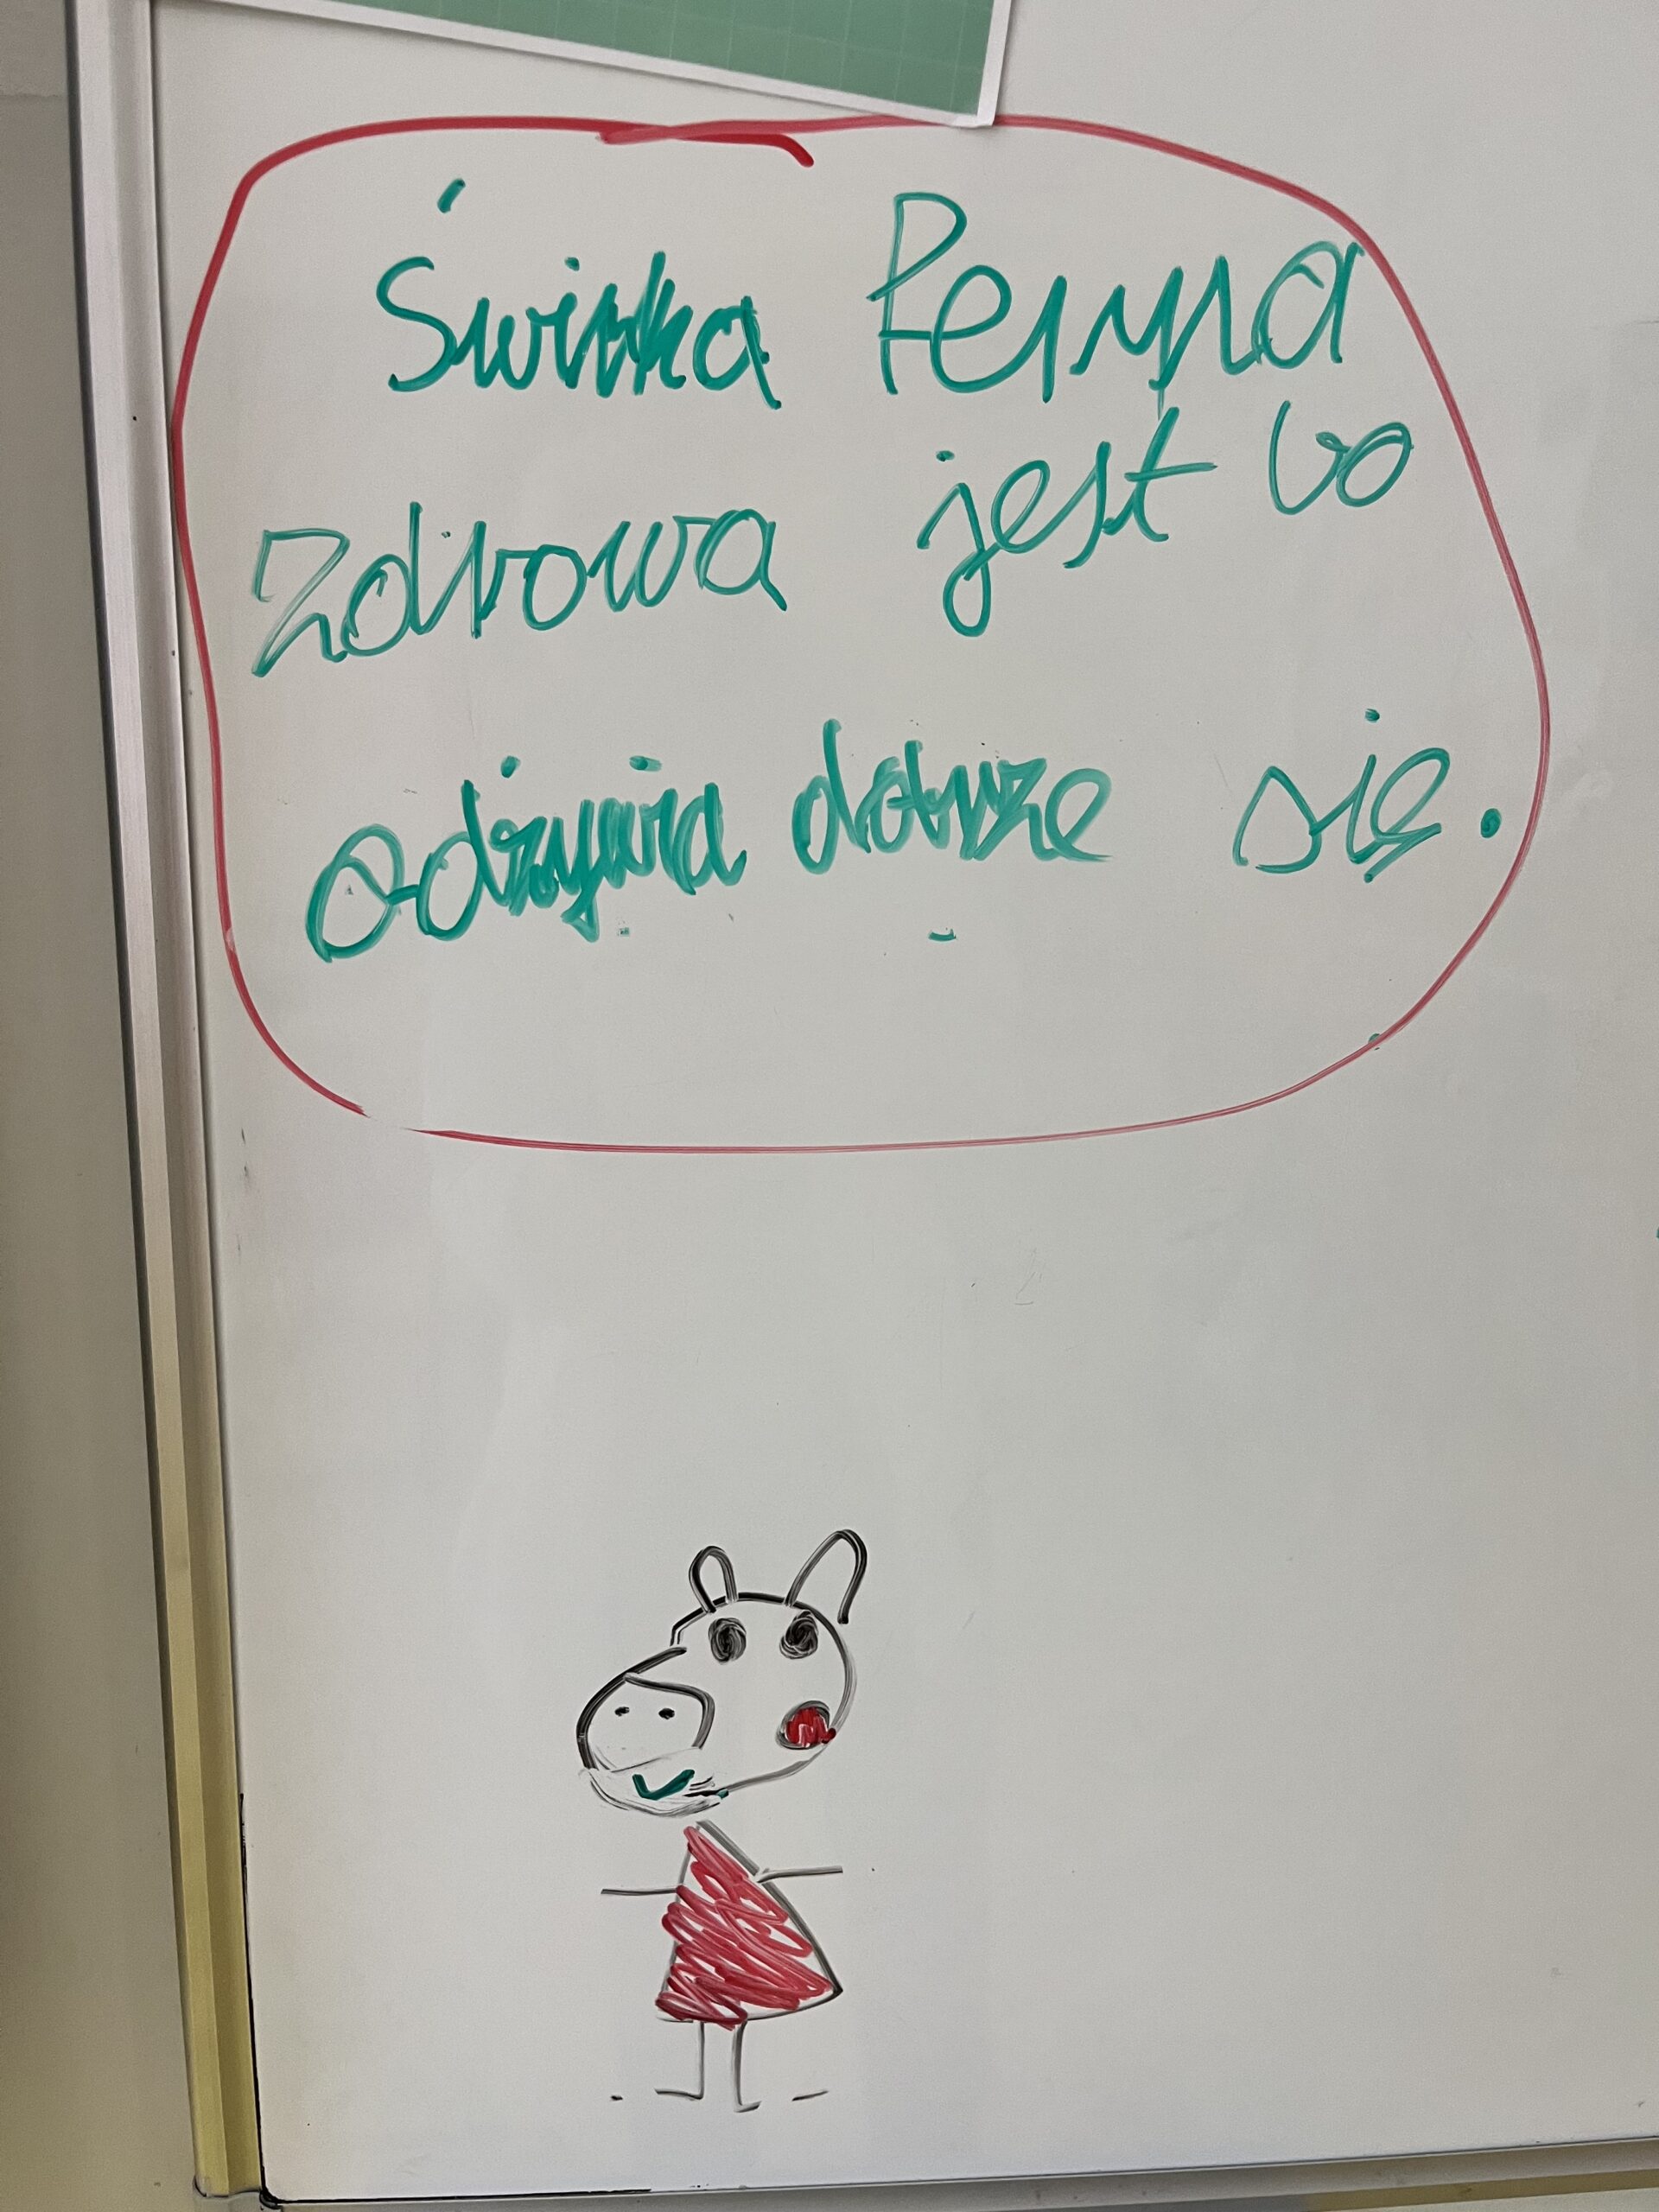 Świnka Peppa
zdrowa jest bo
odżywia dobrze się.